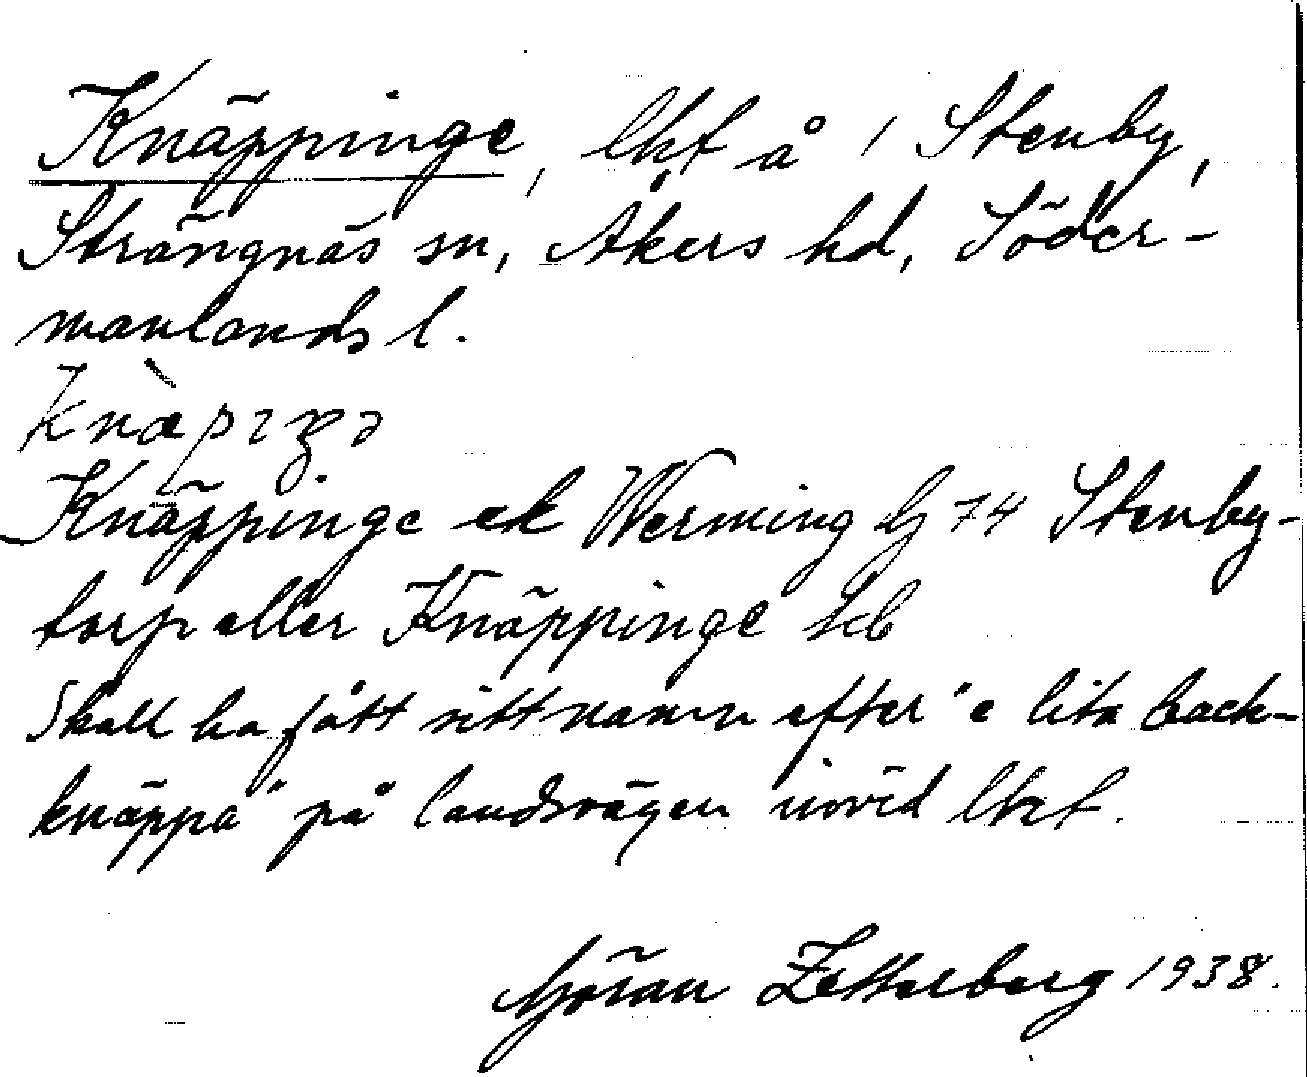 Knäppinge, lht å 1 Stenby,
Strängnäs sn, Åkers hd, Söder-
manlands l.
Knäppinge ek Werming G 74 Stenby-
torp eller Knäppinge Jb
Skall ha fått sitt namn efter "e lita back-
knäppa" på landsvägen invid lht.
Göran Zetterberg 1938.